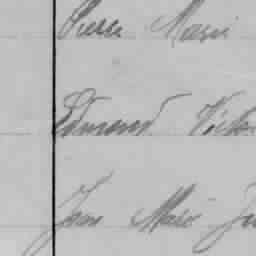 Pierre Marie
Edmond Victor
Jean Marie